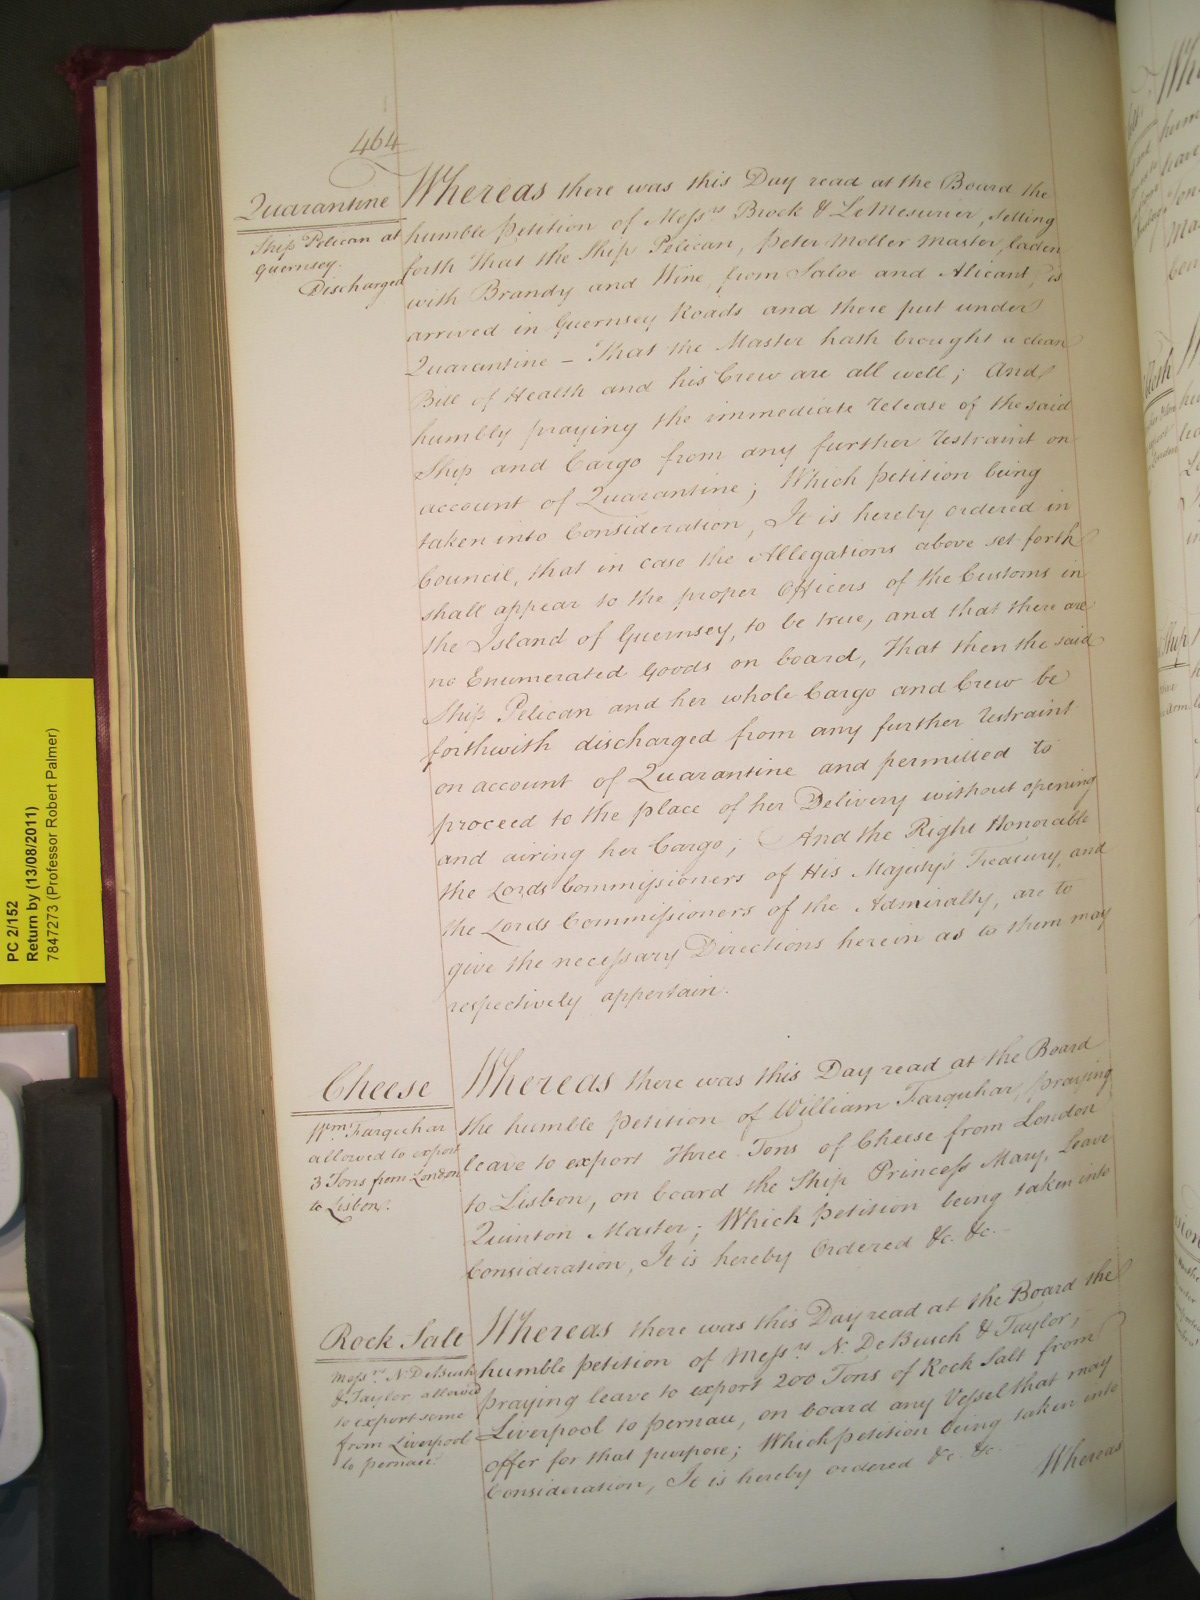 464
Quarantine
Ship Pelican at
Guernsey.
Discharged
Whereas there was this Day read at the Board the
humble petition of Messrs Brock & LeMesurier, setting
forth That the Ship Pelican, Peter Moller Master, laden
with Brandy and Wine from Saloe and Alicant, is
arrived in Guernsey Roads and there put under
Quarantine – That the Master hath brought a clean
Bill of Health and his Crew are all well; And
humbly praying the immediate release of the said
Ship and Cargo from any further restraint on
account of Quarantine; Which petition being
taken into Consideration, It is hereby ordered in
Council, that in case the Allegations above set forth
shall appear to the proper Officers of the Customs in
the Island of Guernsey, to be true, and that there are
no Enumerated Goods on board, That then the said
Ship Pelican and her whole Cargo and Crew be
forthwith discharged from any further restraint
on account of Quarantine and permitted to
proceed to the place of her Delivery without opening
and airing her Cargo; And the Right Honorable
the Lords Commissioners of His Majesty's Treasury, and
the Lords Commissioners of the Admiralty, are to
give the necessary Directions herein as to them may
respectively appertain.
Cheese
Wm. Farquhar
allowed to export
3 Tons from London
to Lisbon.
Whereas there was this Day read at the Board
the humble petition of William Farquhar, praying
leave to export Three Tons of Cheese from London
to Lisbon, on board the Ship Princess Mary, Leave
Quinton Master; Which petition being taken into
Consideration, It is hereby Ordered &c. &c.
Rock Salt
Messrs. N. DeBusch
& Taylor allowed
to export some
from Liverpool
to pernau.
Whereas there was this Day read at the Board the
humble petition of Messrs. N. DeBusch & Taylor,
praying leave to export 200 Tons of Rock Salt from
Liverpool to pernau, on board any Vessel that may
offer for that purpose; Which petition being taken into
Consideration, It is hereby ordered &c. &c.
Whereas
PC 2/152
Return by (13/08/2011)
7847273 (Professor Robert Palmer)